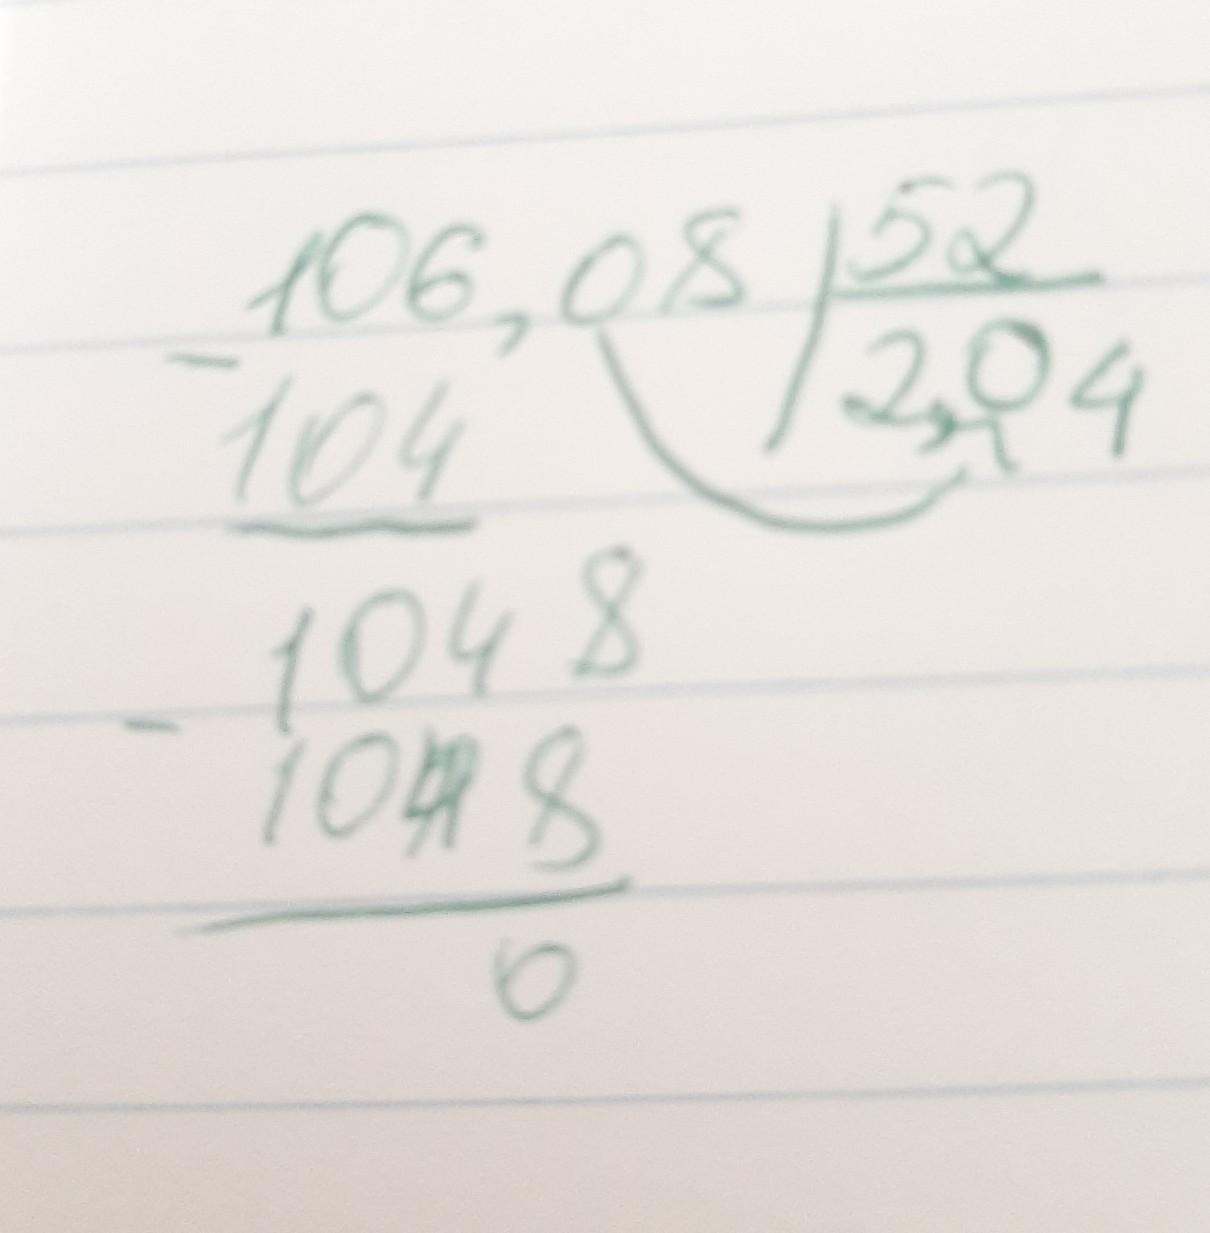 106,08 52
- 2,04
104
1048
-
1048
0